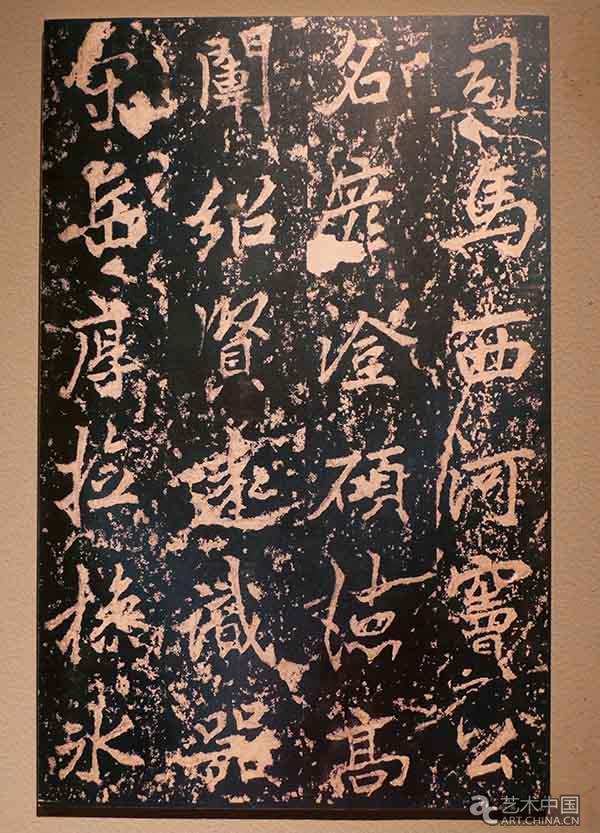 司馬西河竇公
名彥澄碩德高
闡紹賢遠識器
宇岳厚撿操氷
艺术中国
ART.CHINA.CN